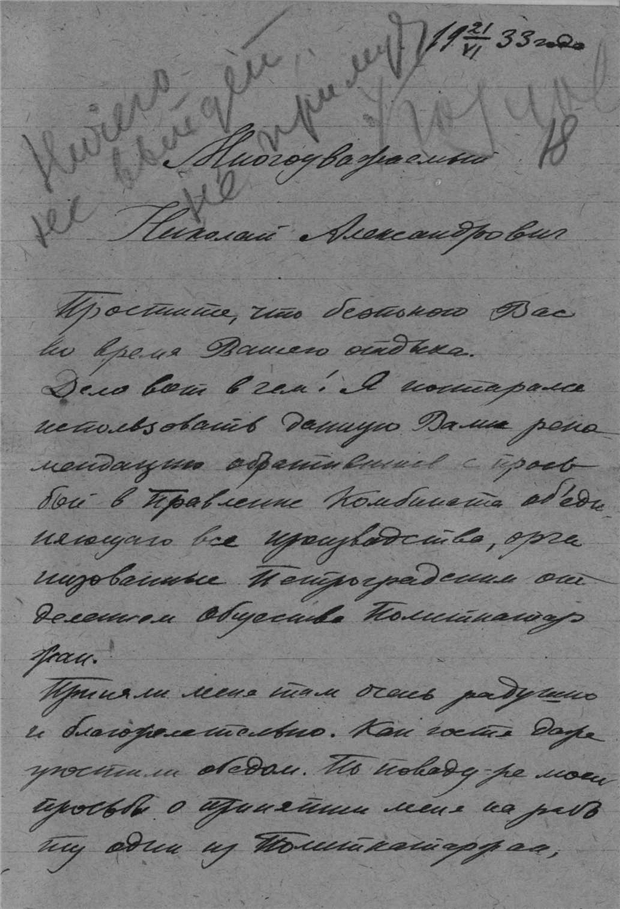 19 21/VI 33 года
Ничего
не выйдет,
не примут
18
Многоуважаемый
Николай Александрович
Простите, что беспокою Вас
во время Вашего отдыха.
Дело вот в чем! Я постарался
использовать данную Вами реко-
мендацию обратившись с прось
бой в Правление Комбината объеди
няющаго все производства, орга
низованные Петроградским от
делением общества Политкатор
жан.
Приняли меня там очень радушно
и благожелательно. Как гостя даже
угостили обедом. По поводу-же моей
просьбы о принятии меня на рабо
ту один из Политкаторжан,